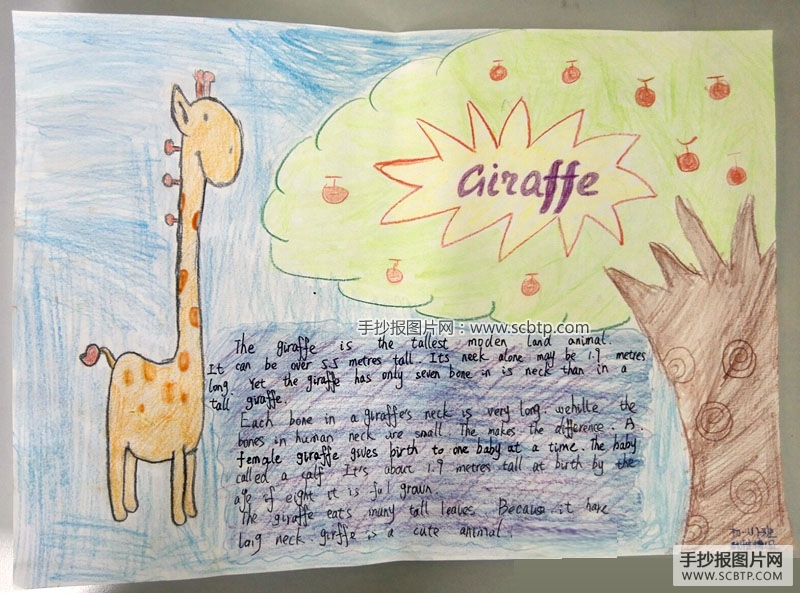 Giraffe
手抄报图片网：www.scbtp.com
The giraffe is the tallest moden land animal.
It can be over 5.5 metres tall. Its neck alone may be 1.9 metres
long. Yet the giraffe has only seven bone in is neck than in a
tall giraffe.
Each bone in a giraffe's neck is very long. wehille the
bones in human neck are small. The makes the difference. A
female giraffe gives birth to one baby at a time. The baby
called a calf. It's about 1.9 metres tall at birth by the
age of eight it is ful grown.
The giraffe eats many tall leaves. Because it have
lang neck. giraffe is a cute animal.
手抄报图片网
WWW.SCBTP.COM